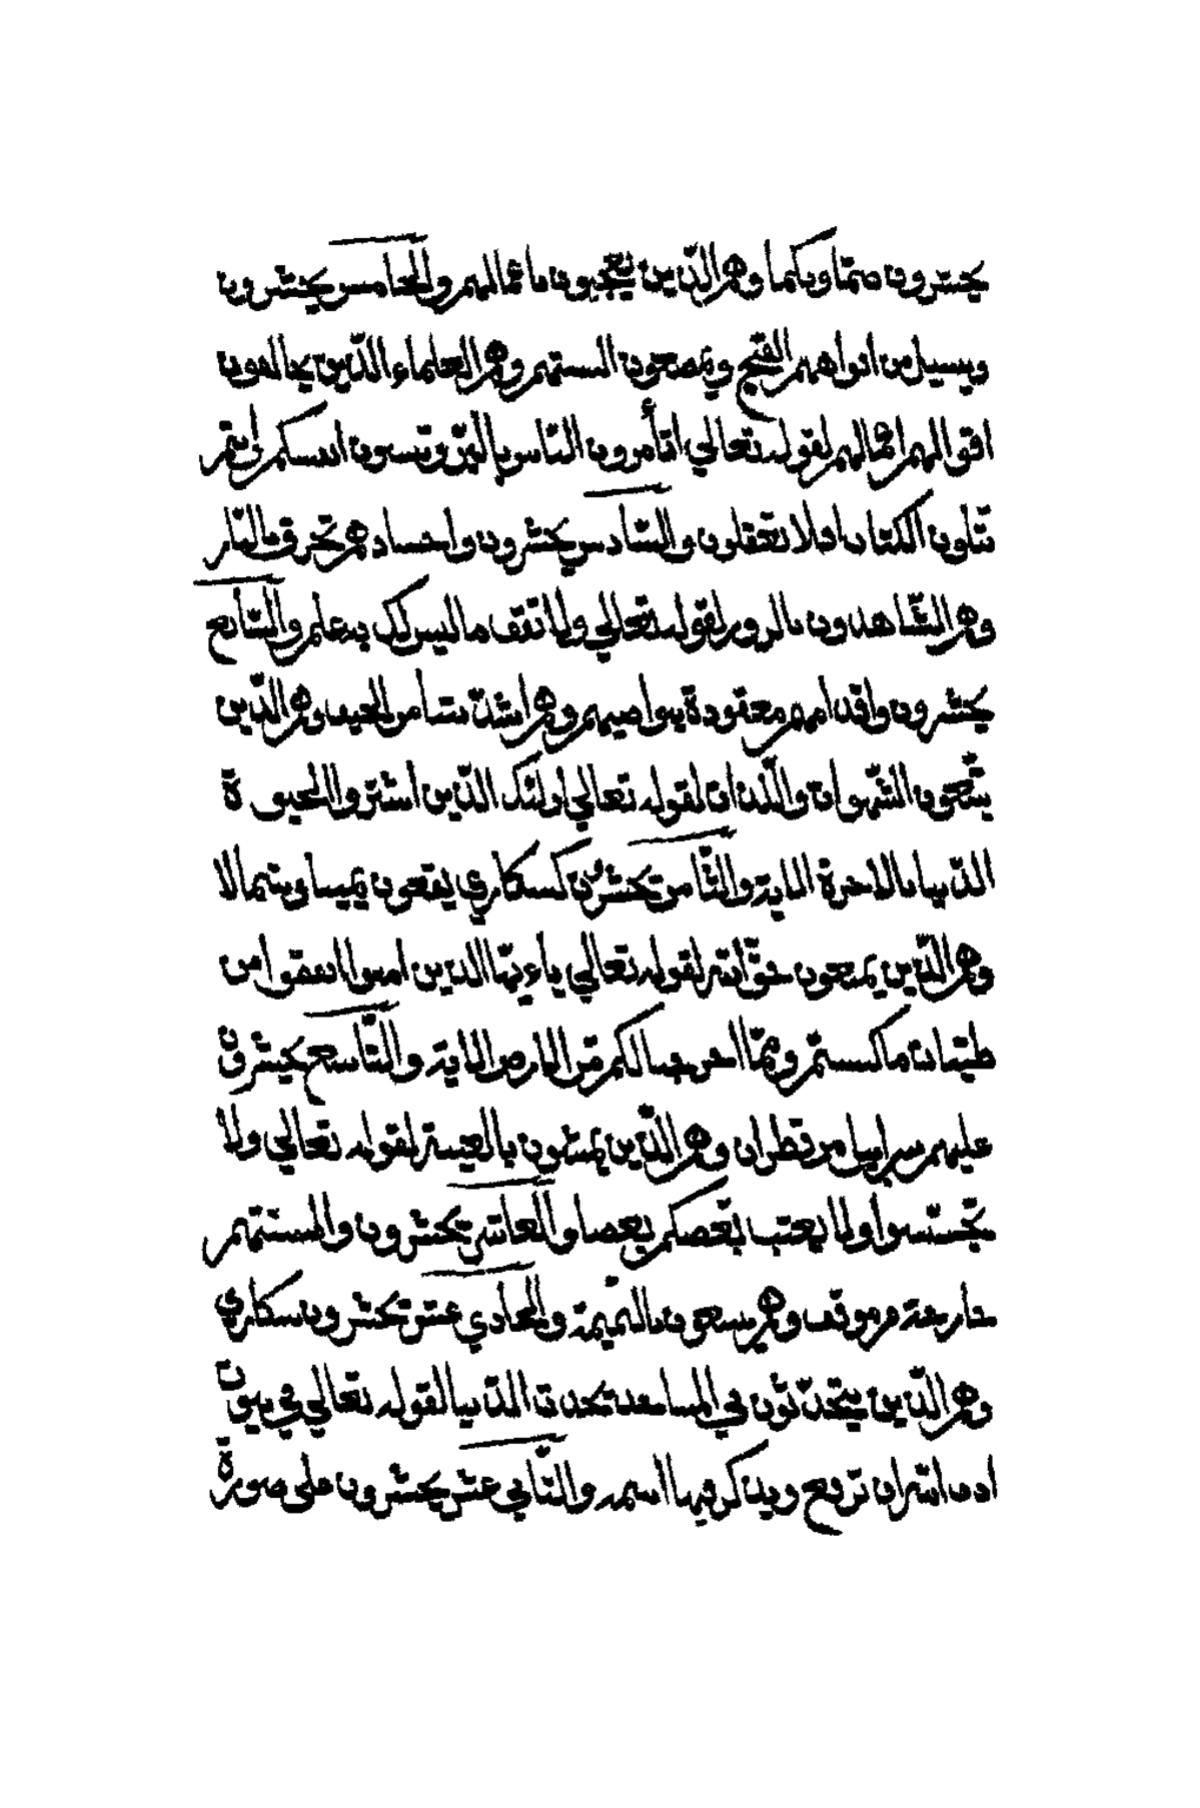 يحشرون صمّا وبكما وهم الّذين يعجبون باعمالهم والخامس يحشرون
ويسيل من افواههم القيح ويمضغون السنتهم وهم العلماء الّذين يخالفون
اقوالهم اعمالهم لقوله تعالي اتأمرون النّاس بالبّر وتنسون انفسكم وأنتم
تتلون الكتاب افلا تعقلون والسّادس يحشرون واجسادهم تحرق بالنّار
وهم الشّاهدون بالزور لقوله تعالي ولا تقف ما ليس لك به علم والسّابع
يحشرون واقدامهم معقودة بنواصيهم وهم اشدّ نتنا من الجيف وهم الّذين
يتّبعون الشّهوات واللّذات لقوله تعالي اولئك الّذين اشتروا الحيوة
الدّنيا بالاخرة الاية والثّامن يحشرون كسكاري يقعون يمينا وشمالا
وهم الّذين يمنعون حقّ الله لقوله تعالي ياءيّها الذين امنوا انفقوا من
طيّبات ما كسبتم وممّا اخرجنا لكم مّن الارض الاية والتّاسع يحشرون
عليهم سرابيل من قطران وهم الّذين يمشون بالغيبة لقوله تعالي ولا
تجّسسوا ولا يغتب بّعضكم بعضا والعاشر يحشرون والسنتهم
خارجة من موقف وهم يسعون بالنّميمة والحادي عشر يحشرون سكاري
وهم الّذين يتحدّثون في المساجد تحدث الدّنيا لقوله تعالي في بيوت
اذن الله ان ترفع ويذكر فيها اسمه والثّاني عشر يحشرون علي صورة